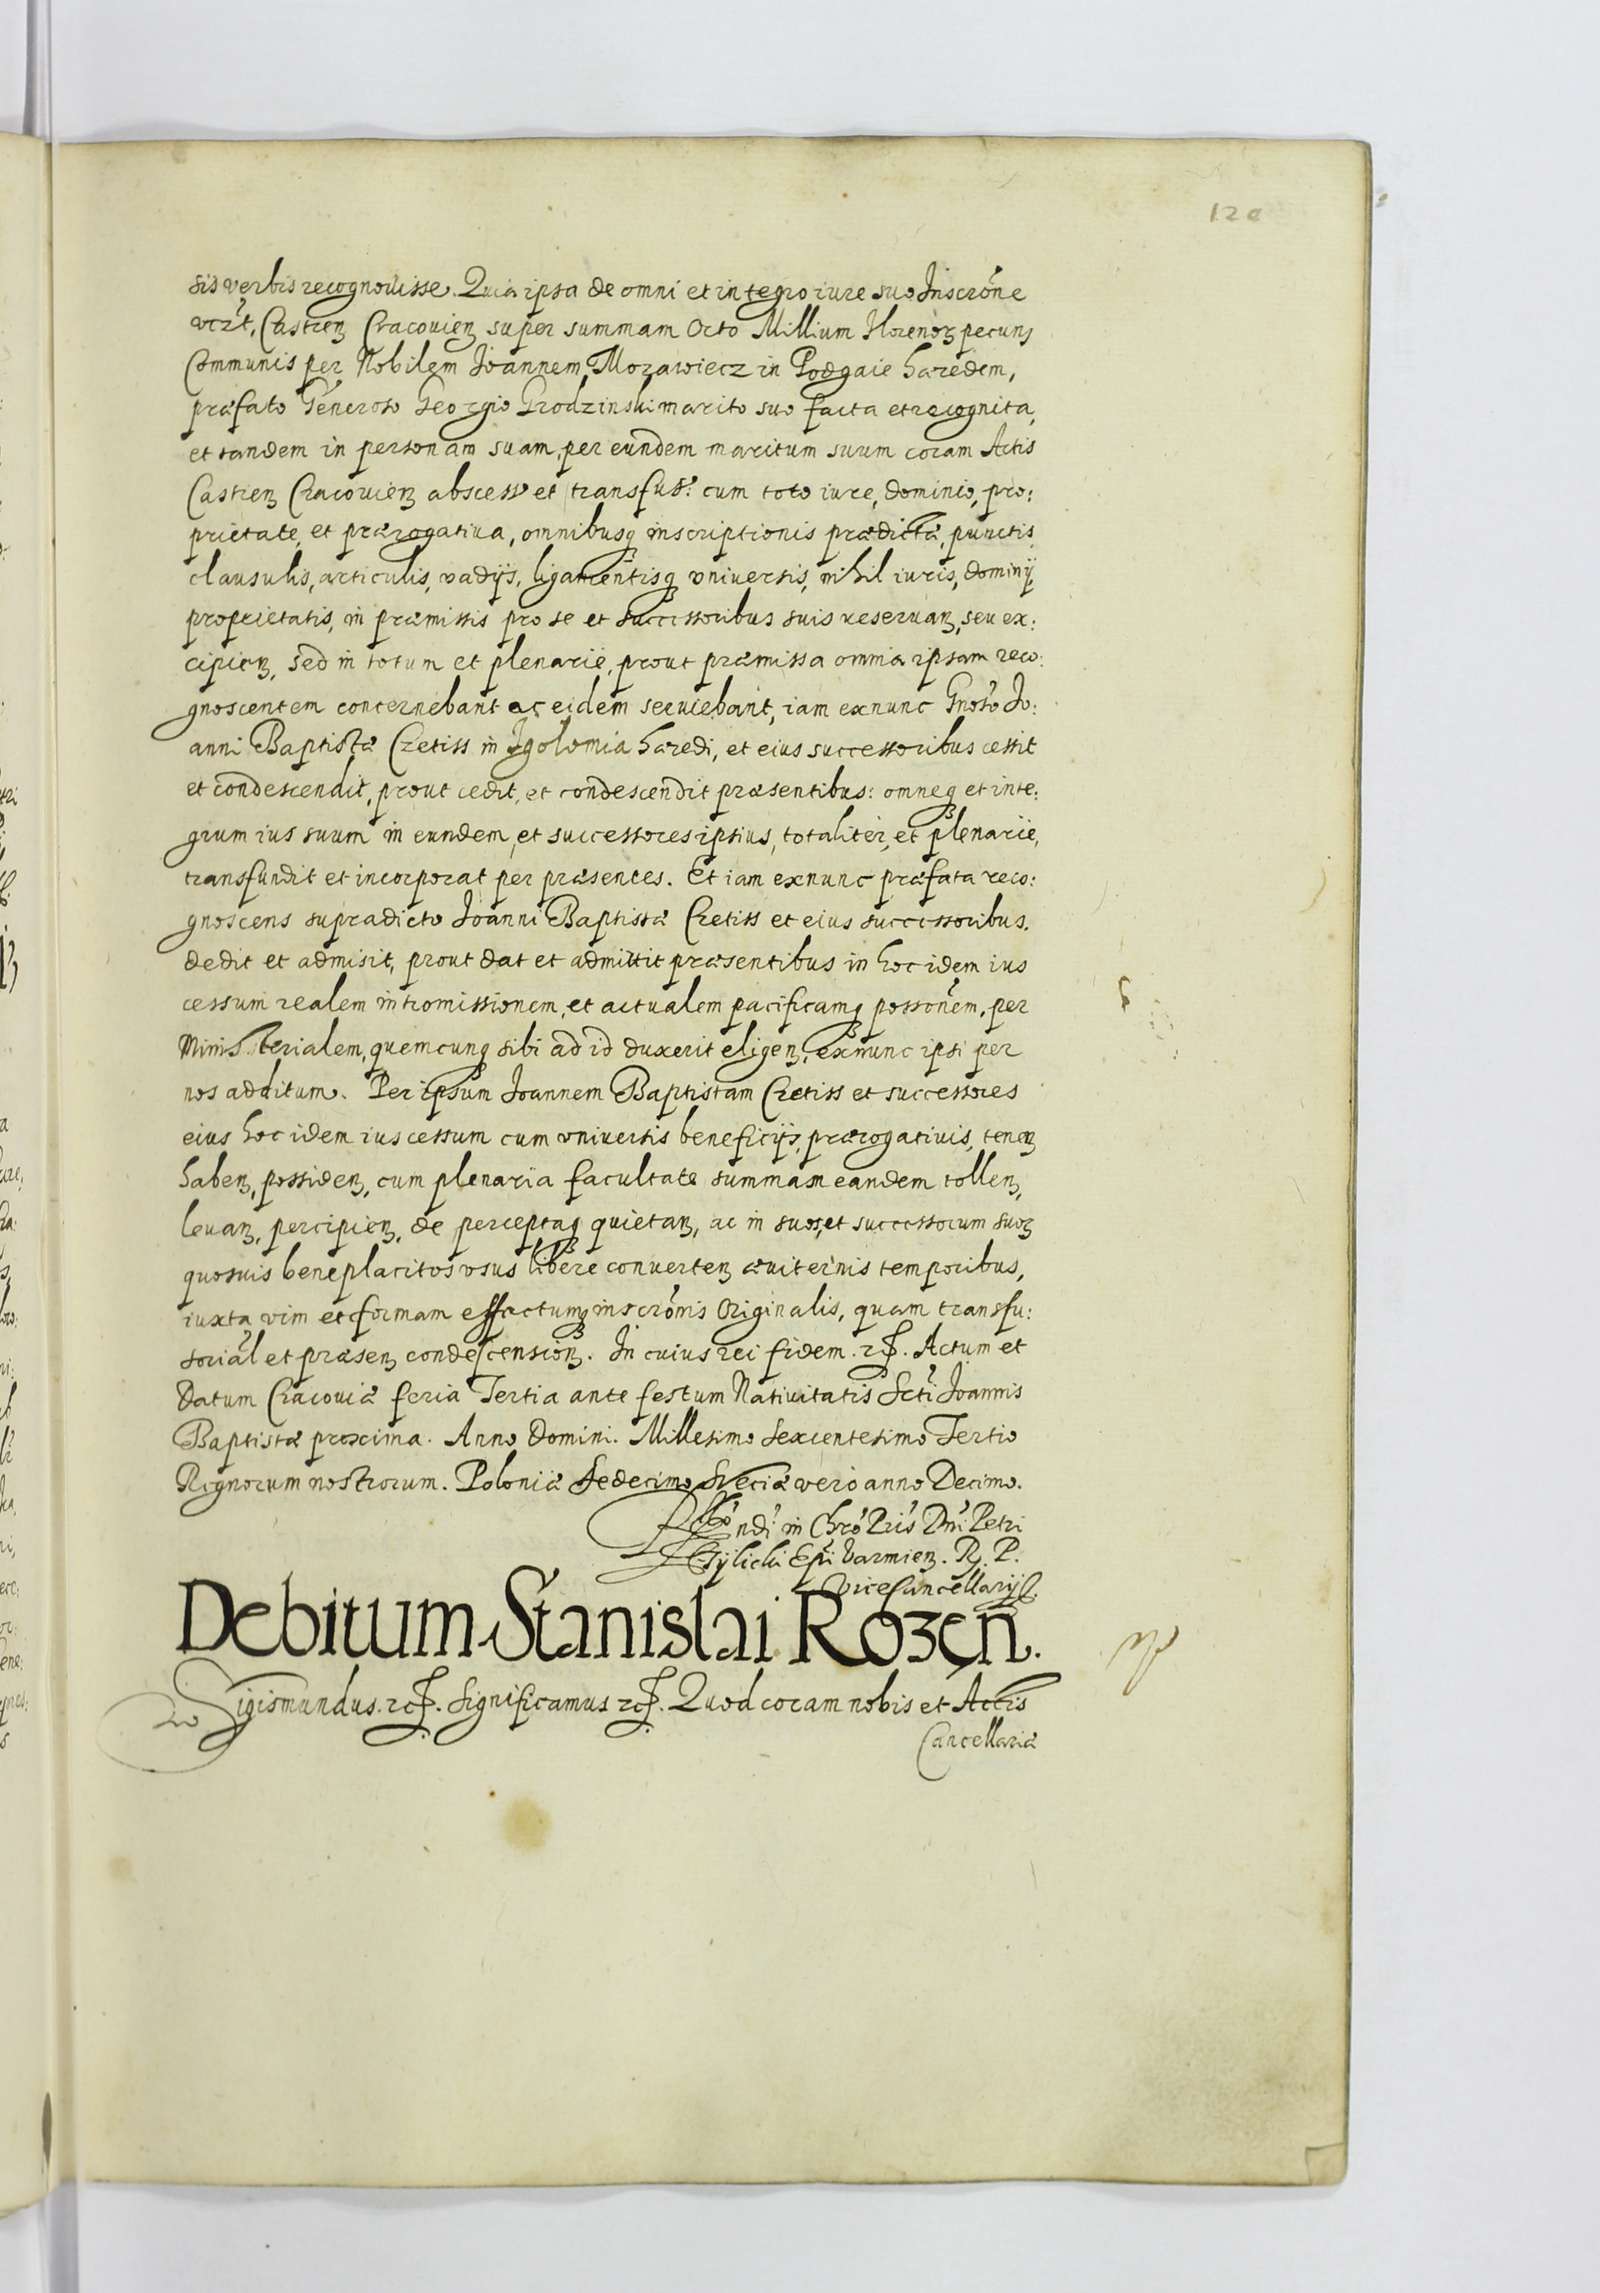 120
sis verbis recognovisse. Quia ipsa de omni et integro iure suo Inscrōne
vtr̃t, Castren̄ Cracouien̄ super summam Octo Millium Florenoꝝ pecuns
Communis per Nobilem Joannem Morawiecz in Podgaie hæredem,
præfato Generoso Georgio Grodzinski marito suo facta et recognita,
et tandem in personam suam, per eundem maritum suum coram Actis
Castren̄ Cracouien̄ abscess et transfus: cum toto iure, dominio, pro:
prietate, et prærogatiua, omnibusq inscriptionis prædictæ, punctis
clausulis, articulis, vadijs, ligamentisq vniuersis, nihil iuris, dominij
proprietatis, in præmissis pro se et successoribus suis reseruan̄, seu ex:
cipien̄, sed in totum et plenarie, prout præmissa omnia ipsam reco:
gnoscentem concernebant ac eidem seruiebant, iam exnunc Gnoso Jo:
anni Baptistæ Cetiss in Igolomia hæredi, et eius successoribus cessit
et condescendit, prout cedit, et condescendit præsentibus: omneq et inte:
grum ius suum in eundem, et successores ipsius, totaliter, et plenarie,
transfundit et incorporat per præsentes. Et iam exnunc præfata reco:
gnoscens supradicto Joanni Baptistæ Cetiss et eius successoribus.
dedit et admisit, prout dat et admittit præsentibus in hoc idem ius
cessum realem intromissionem, et actualem pacificamq possonem, per
Ministerialem, quemcunq sibi ad id duxerit eligen̄, exnunc ipsi per
nos additum. Per ipsum Joannem Baptistam Cetiss et successores
eius hoc idem ius cessum cum vniuersis beneficijs, prærogatiuis, tenen̄
haben̄, possiden̄, cum plenaria facultate summam eandem tollen̄,
leuan̄, percipien̄, de perceptaq quietan̄, ac in suos, et successorum suoꝝ
quosuis beneplacitos vsus libere conuerten̄ æuiternis temporibus,
iuxta vim et formam effectumq inscrōnis Originalis, quam transfu:
sorial et præsen̄ condescension̄. In cuius rei fidem. rc. Actum et
Datum Cracouiæ feria Tertia ante festum Natiuitatis Scti Joannis
Baptistæ proxima. Anno Domini. Millesimo Sexcentesimo Tertio
Regnorum nostrorum. Poloniæ Sedecimo Sueciæ vero anno Decimo.
Rndi in Chro Pris Dni Petri
Tylicki Epi Varmien̄. R. P.
Vice Cancellarij
Debitum Stanislai Rozen.
Sigismundus. rc. Significamus rc. Quod coram nobis et Actis
Cancellariæ